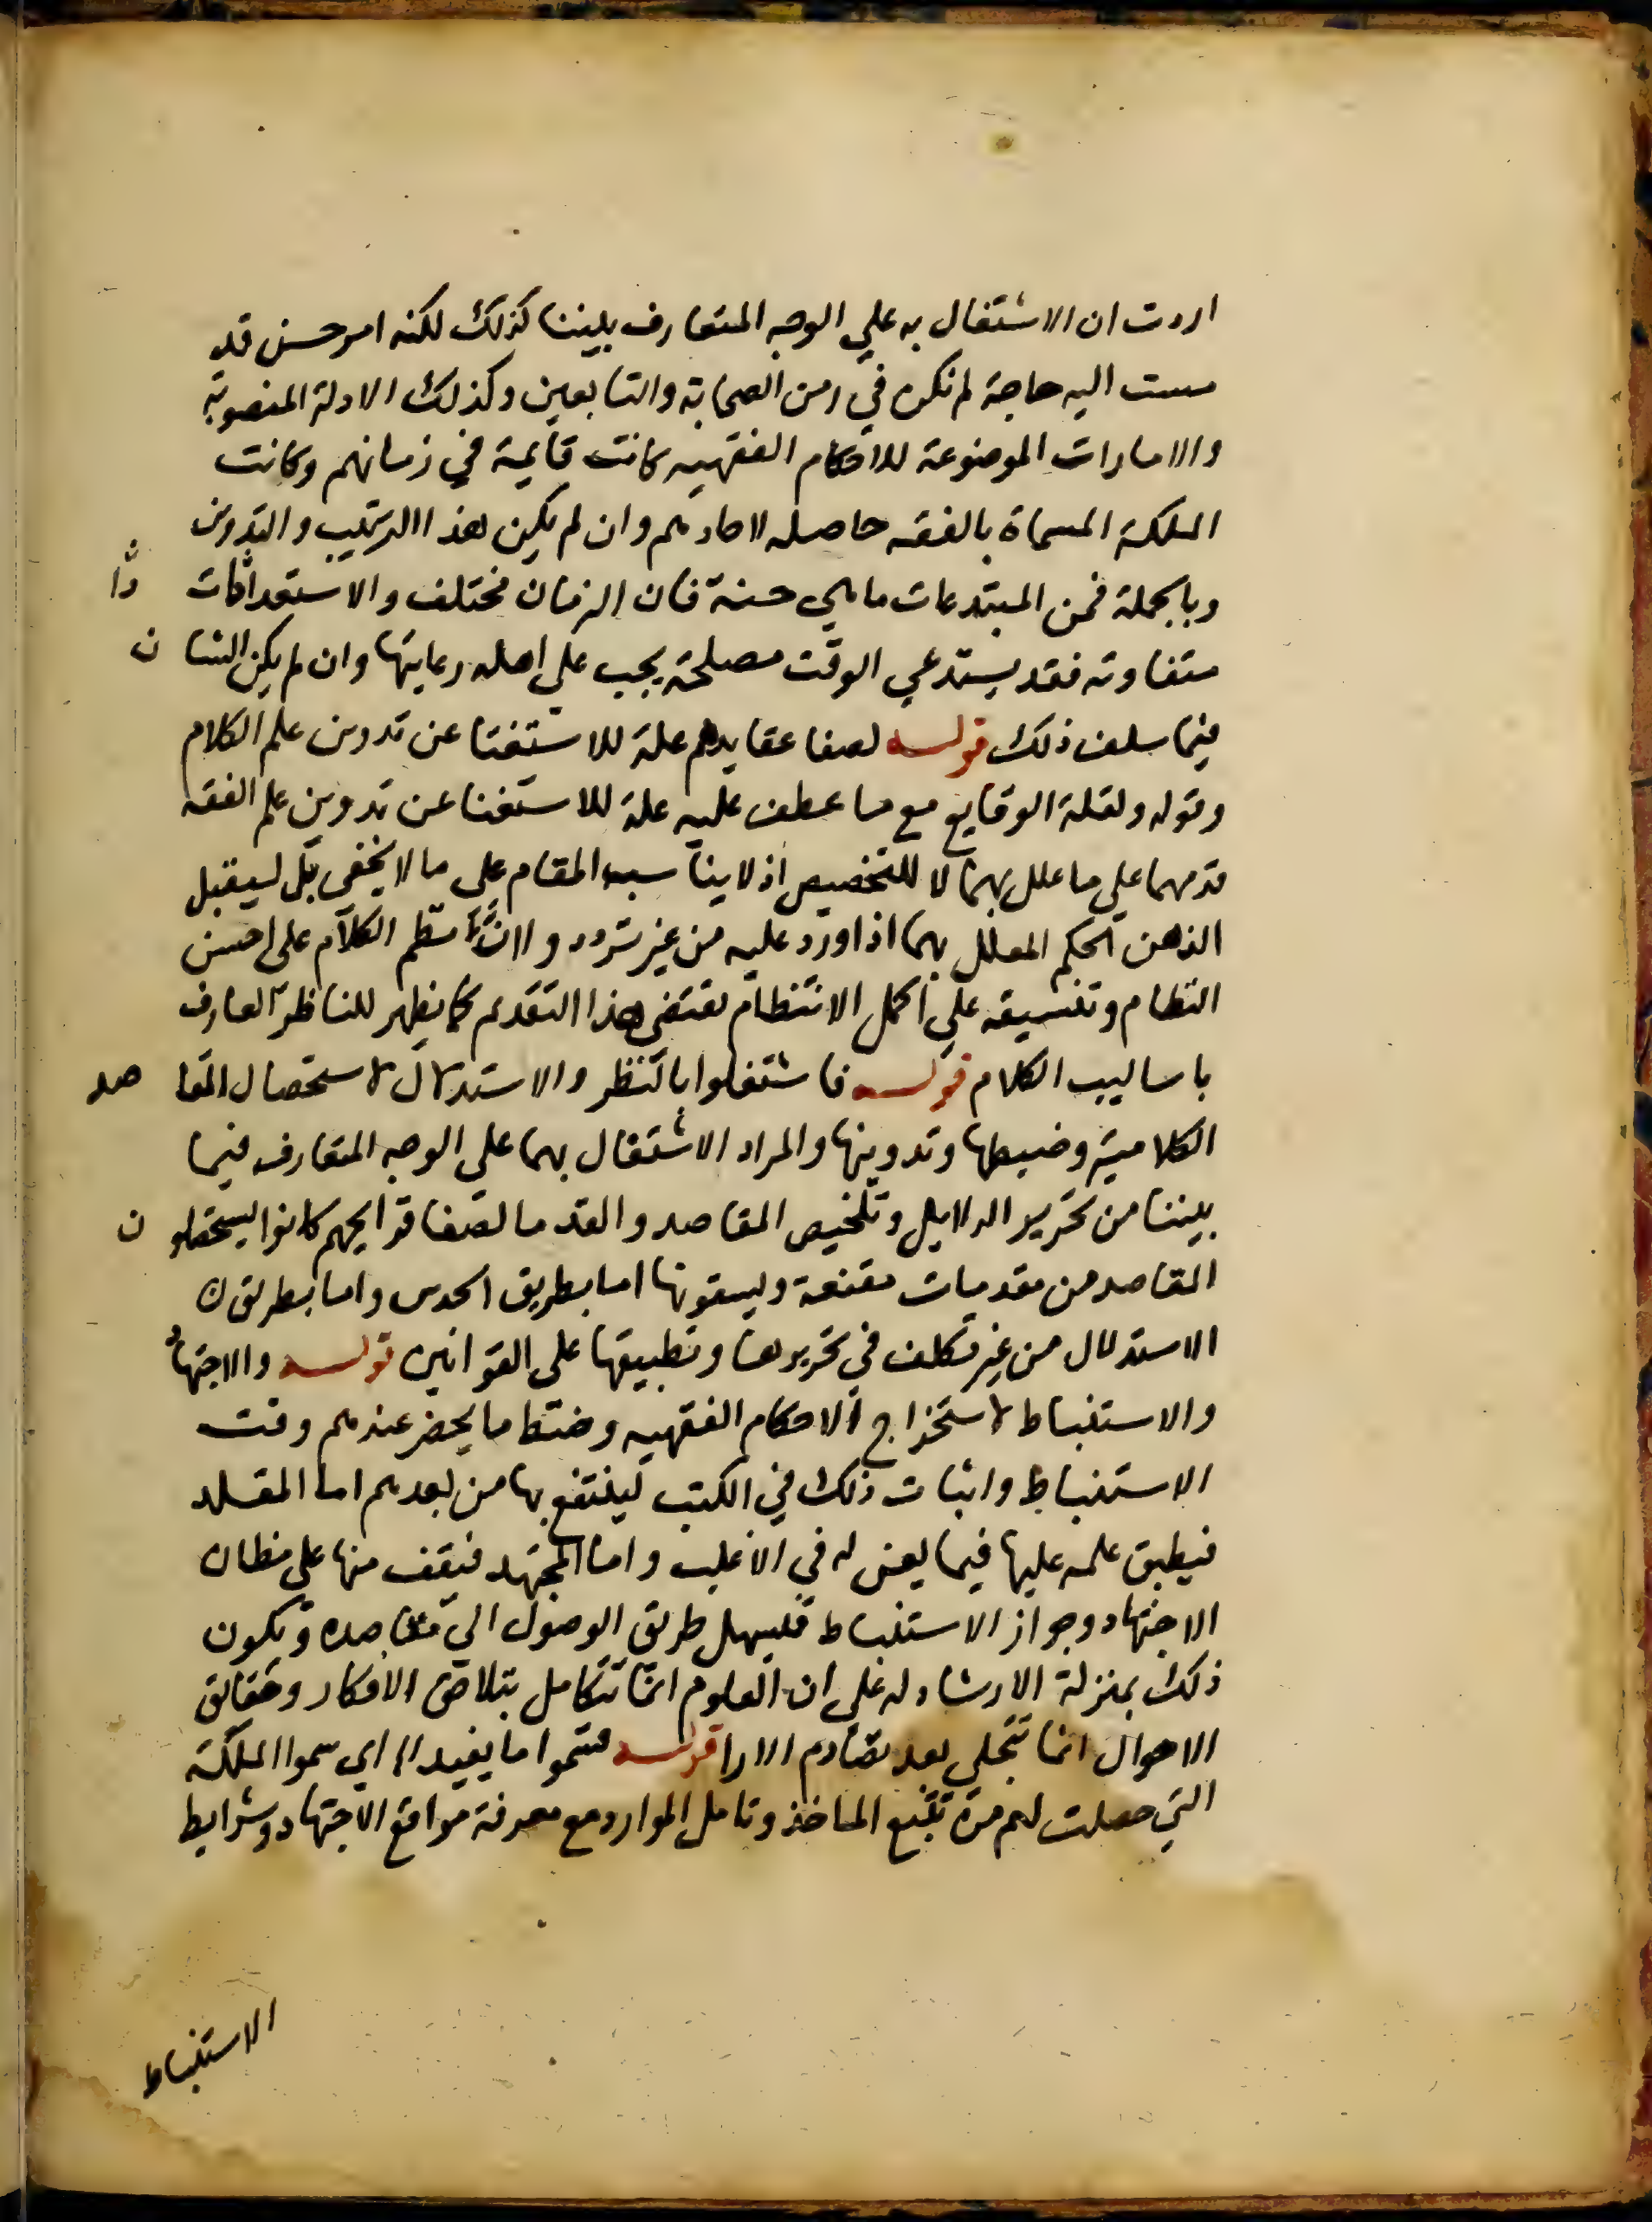 اردت ان الاشتغال به علي الوجه المتعارف بيننا كذلك لكنه امر حسن قد
مست اليه حاجة لم تكن في زمن الصحابة والتابعين وكذلك الادلة المنصوبة
والامارات الموضوعة للاحكام الفقهيه كانت قايمة في زمانهم وكانت
الملكة المسماة بالفقه حاصله لاحادهم وان لم يكن هذا الترتيب والتدوين
وبالجملة فمن المبتدعات ما هي حسنة فان الزمان مختلف والاستعدادات
متفاوته فقد يستدعي الوقت مصلحة يجب علي اهله رعايتها وان لم يكن الشان
فيما سلف ذلك قوله لصفا عقايدهم علة للاستغنا عن تدوين علم الكلام
وقوله ولقلة الوقايع مع ما عطف عليه علة للاستغنا عن تدوين علم الفقه
قدمهما علي ما علل بهما لا للتخصيص اذ لا يناسبه المقام على ما لا يخفى بل ليقبل
الذهن الحكم المعلل بهما اذا اورد عليه من غير تردد و نظم الكلام على احسن
النظام وتنسيقه علي اكمل الانتظام يقتضي هذا التقديم كما يظهر للناظر العارف
باساليب الكلام قوله فاشتغلوا بالنظر والاستدلال لاستحصال المقاصد
الكلامية وضبطها وتدوينها والمراد الاشتغال بهما على الوجه المتعارف فيما
بيننا من تحرير الدلايل وتلخيص المقاصد والقدما لصفا قرايحهم كانوا يستحصلون
المقاصد من مقدمات مقنعة ويسوقونها اما بطريق الحدس واما بطريق
الاستدلال من غير تكلف في تحريرها وتطبيقها على القوانين قوله والاجتهاد
والاستنباط لاستخراج الاحكام الفقهيه وضبط ما يحضر عندهم وقت
الاستنباط واثبات ذلك في الكتب لينتفع بها من بعدهم اما المقلد
فيطبق علمه عليها فيما يعن له في الاغلب واما المجتهد فيقف منها على مظان
الاجتهاد وجواز الاستنباط فليسهل طريق الوصول الي مقاصده ويكون
ذلك بمنزلة الارشاد له علي ان العلوم انما تتكامل بتلاحق الافكار وحقايق
الاحوال انما تتجلى بعد تصادم الارا قوله فسموا ما يفيد الا اي سموا الملكة
التي حصلت لهم من تتبع الماخذ وتامل الموارد مع معرفة مواقع الاجتهاد وشرايط
الاستنباط